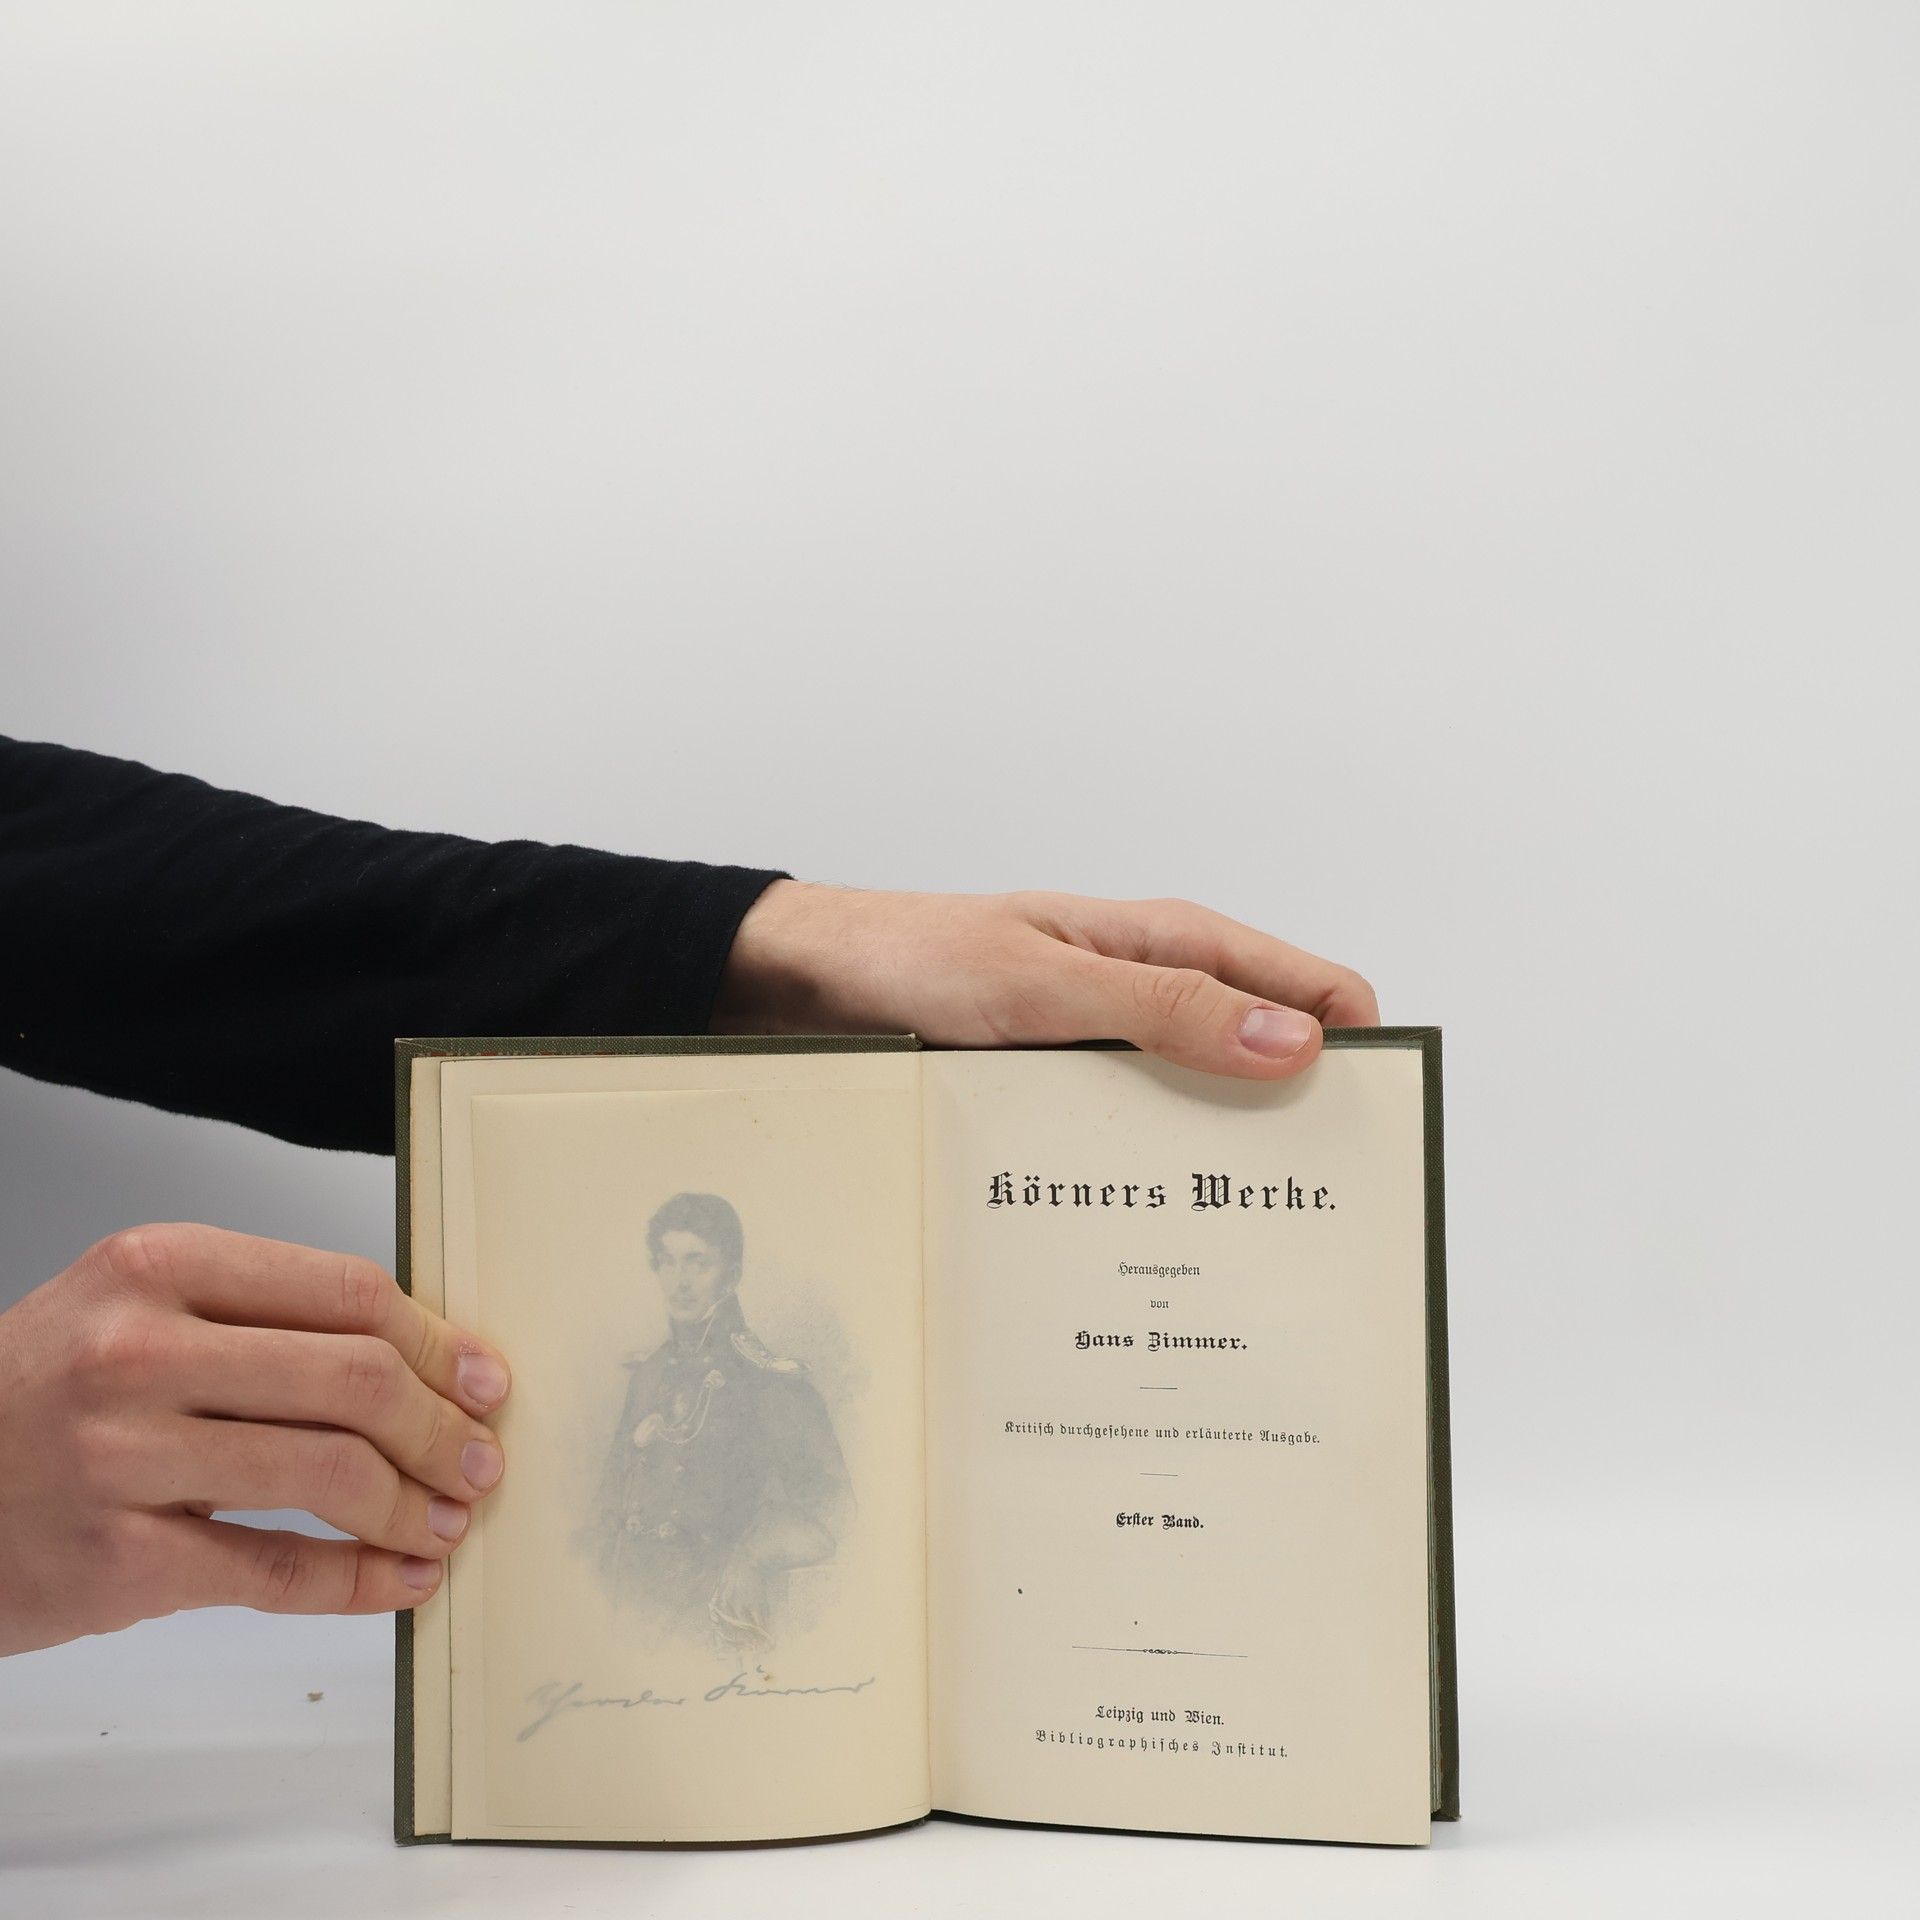 Theodor Körner
Körners Werke.
Herausgegeben
von
Hans Zimmer.
Kritisch durchgesehene und erläuterte Ausgabe.
Erster Band.
Leipzig und Wien.
Bibliographisches Institut.